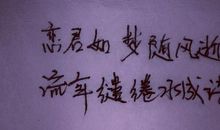 恋君如梦随风逝
流年缱绻不成诗